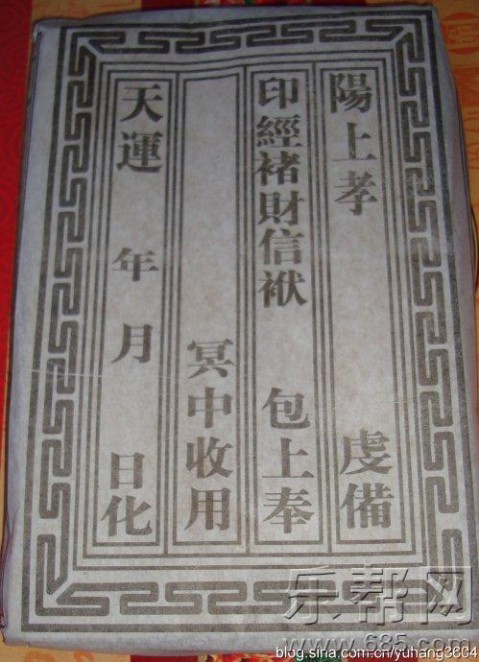 陽上孝 虔備
印經褚財信袱 包上奉
冥中收用
天運 年 月 日化
乐帮网
www.685.com
blog.sina.com.cn/yuhang3604